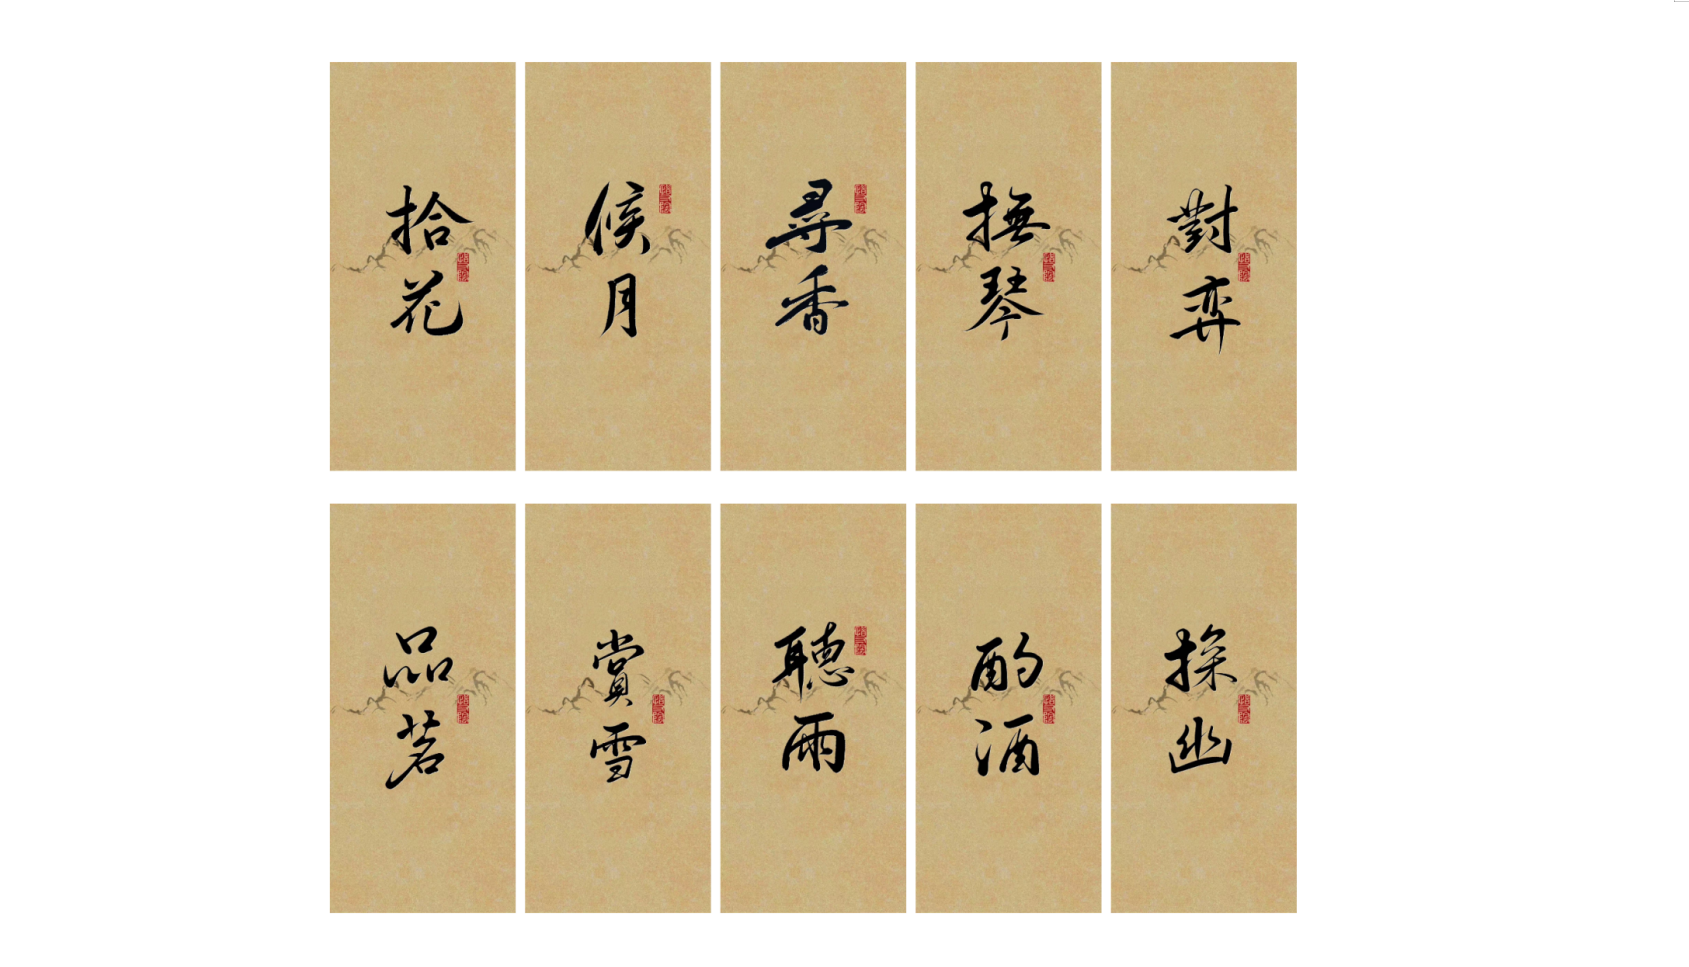 拾花
候月
尋香
撫琴
對弈
品茗
賞雪
聽雨
酌酒
探幽